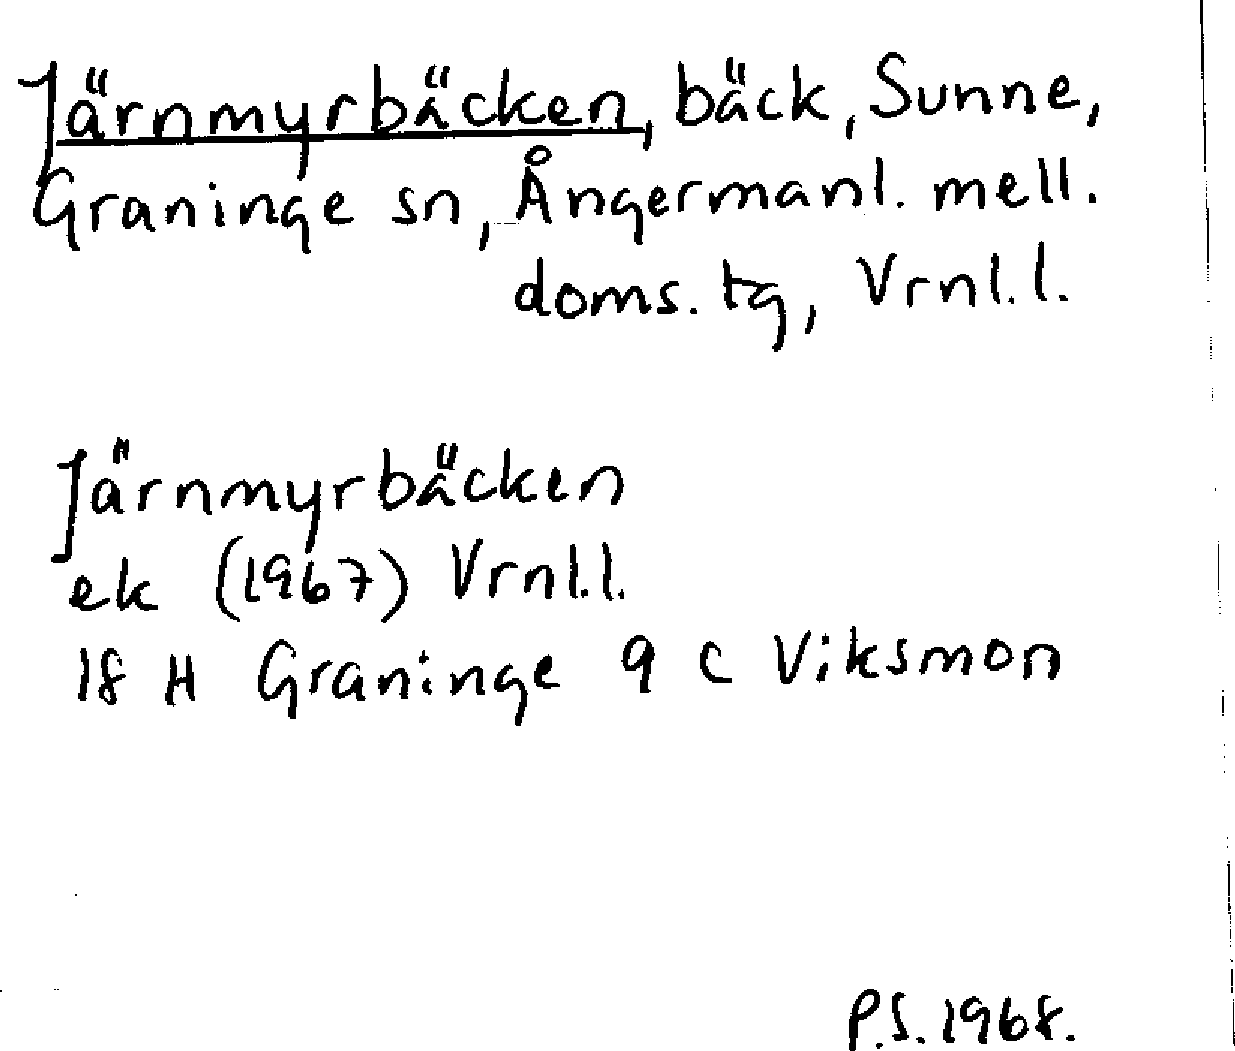 Järnmyrbäcken, bäck, Sunne,
Graninge sn, Ångermanl. mell.
doms. tg, Vrnl.l.
Järnmyrbäcken
ek (1967) Vrnl.l.
18 H Graninge 9 c Viksmon
P.S. 1968.